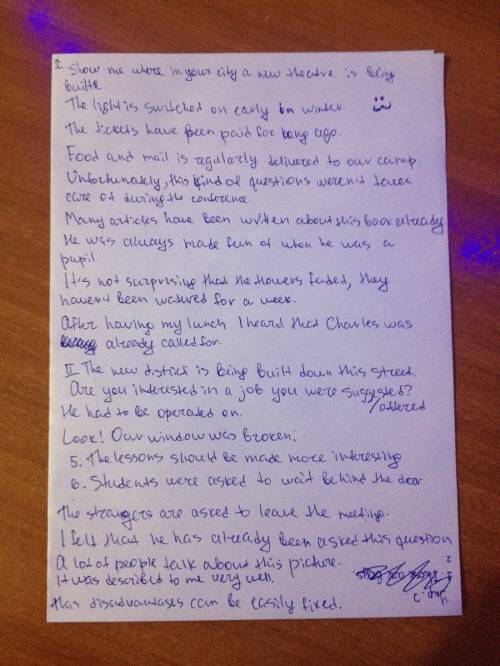 I Show me were in your city a new theatre is being
built.
The light is switched on early in winter.
The tickets have been paid for long ago.
Food and mail is regularly delivered to our camp.
Unfortunately, this kind of questions weren't taken
care of during the conference.
Many articles have been written about this book already
He was always made fun of when he was a
pupil
It's not surprising that the flowers faded, they
haven't been watered for a week.
After having my lunch I heard that Charles was
already called for.
II The new district is being built down this street
Are you interested in a job you were suggested?
/offered
He had to be operated on.
Look! Our window was broken.
5. The lessons should be made more interesting
6. Students were asked to wait behind the door
The strangers are asked to leave the meeting.
I felt that he has already been asked this question
A lot of people talk about this picture.
It was described to me very well.
This disadvantages can be easily fixed.